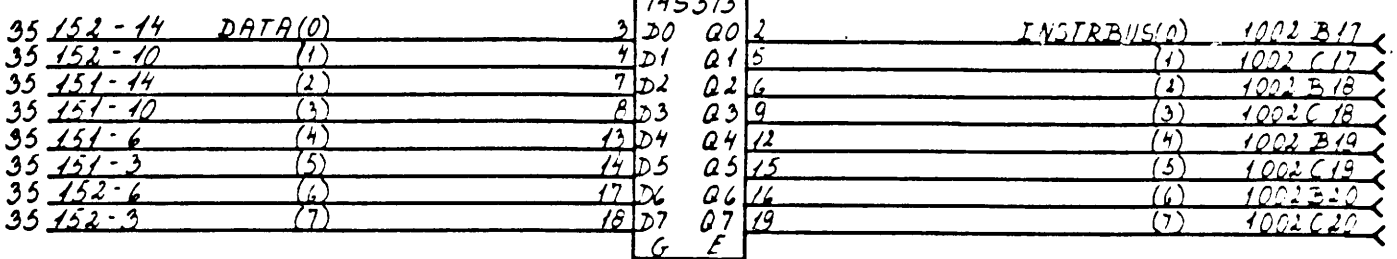 74S373
35 152-14 DATA(0) 3 D0 Q0 2 INSTRBUS(0) 1002 B17
35 152-10 (1) 4 D1 Q1 5 (1) 1002 C17
35 151-14 (2) 7 D2 Q2 6 (2) 1002 B18
35 151-10 (3) 8 D3 Q3 9 (3) 1002 C18
35 151-6 (4) 13 D4 Q4 12 (4) 1002 B19
35 151-3 (5) 14 D5 Q5 15 (5) 1002 C19
35 152-6 (6) 17 D6 Q6 16 (6) 1002 B20
35 152-3 (7) 18 D7 Q7 19 (7) 1002 C20
G E